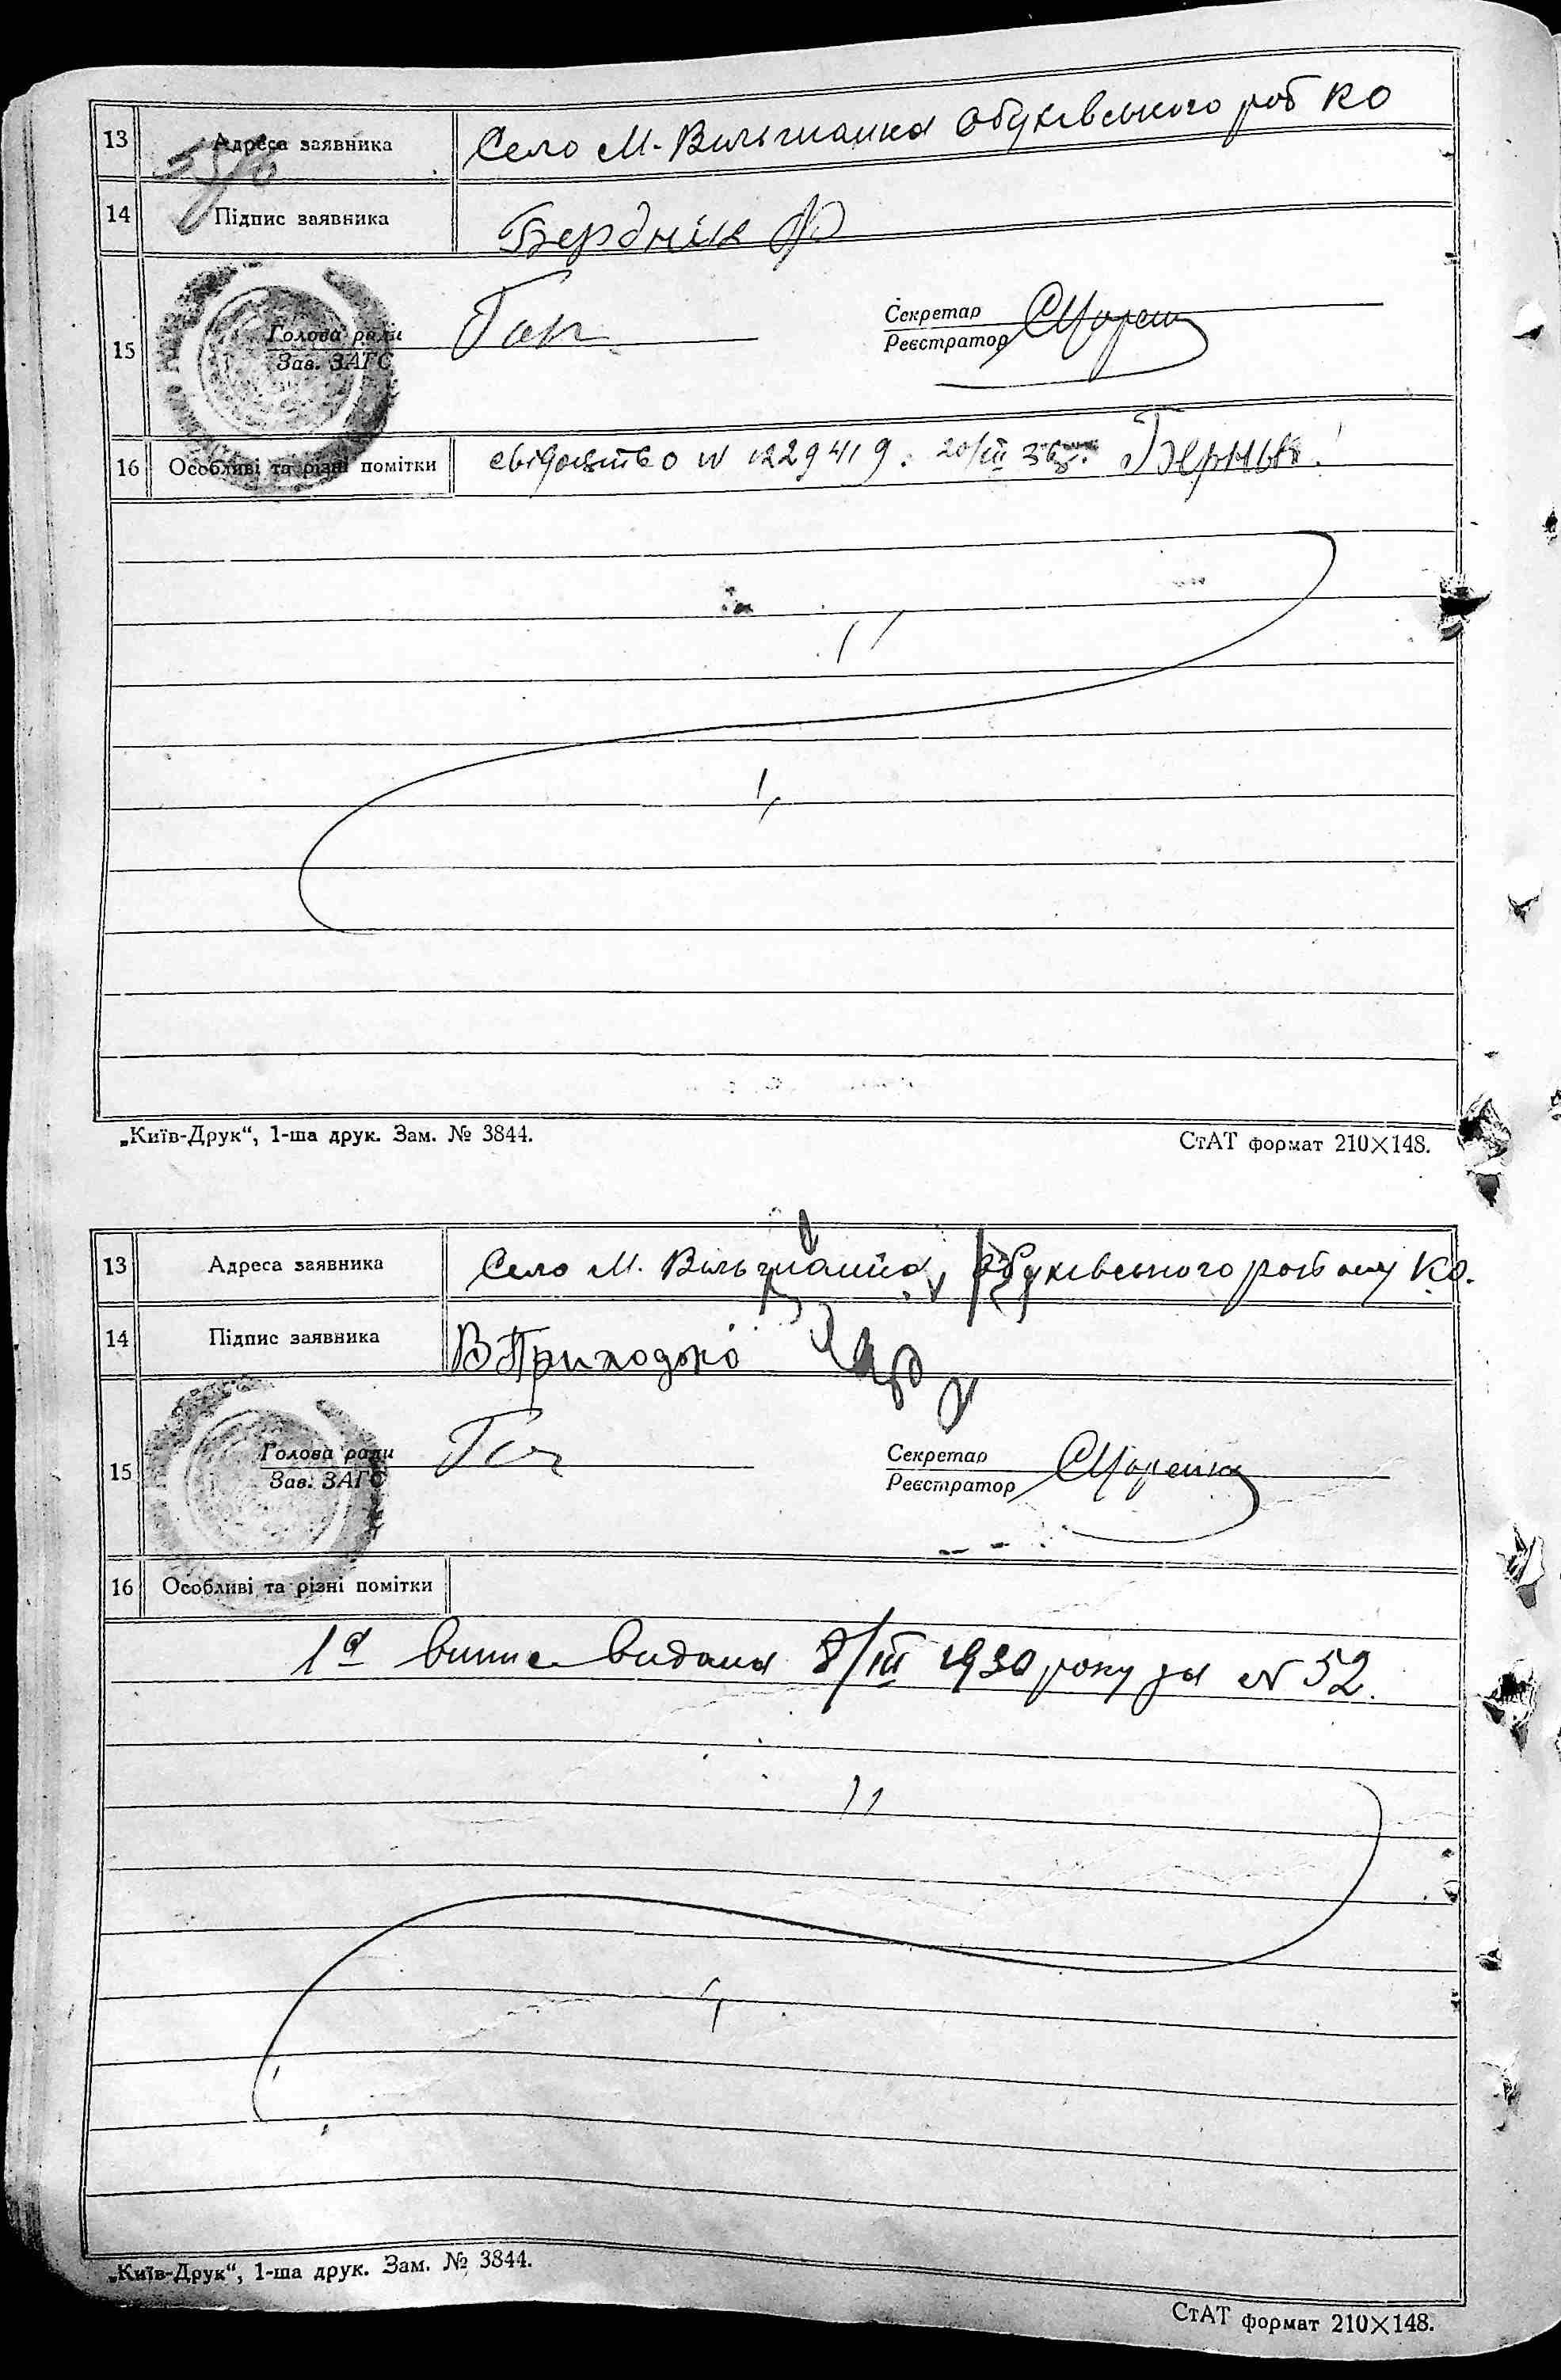 13 Адреса заявника Село М. Вільшанка Обухівського рай КО
14 Підпис заявника Бердник Ф
15 Голова ради Секретар
Зав. ЗАГС Реєстратор
16 Особливі та різні помітки свідоцтво N 1229419. 20/III
„Київ-Друк“, 1-ша друк. Зам. № 3844. СтАТ формат 210×148.
13 Адреса заявника Село М. Вільшанка, Обухівського району КО.
14 Підпис заявника В Приходько
15 Голова ради Секретар
Зав. ЗАГС Реєстратор
16 Особливі та різні помітки
1а видана 8/III 1930 року за N 52.
„Київ-Друк“, 1-ша друк. Зам. № 3844.
СтАТ формат 210×148.